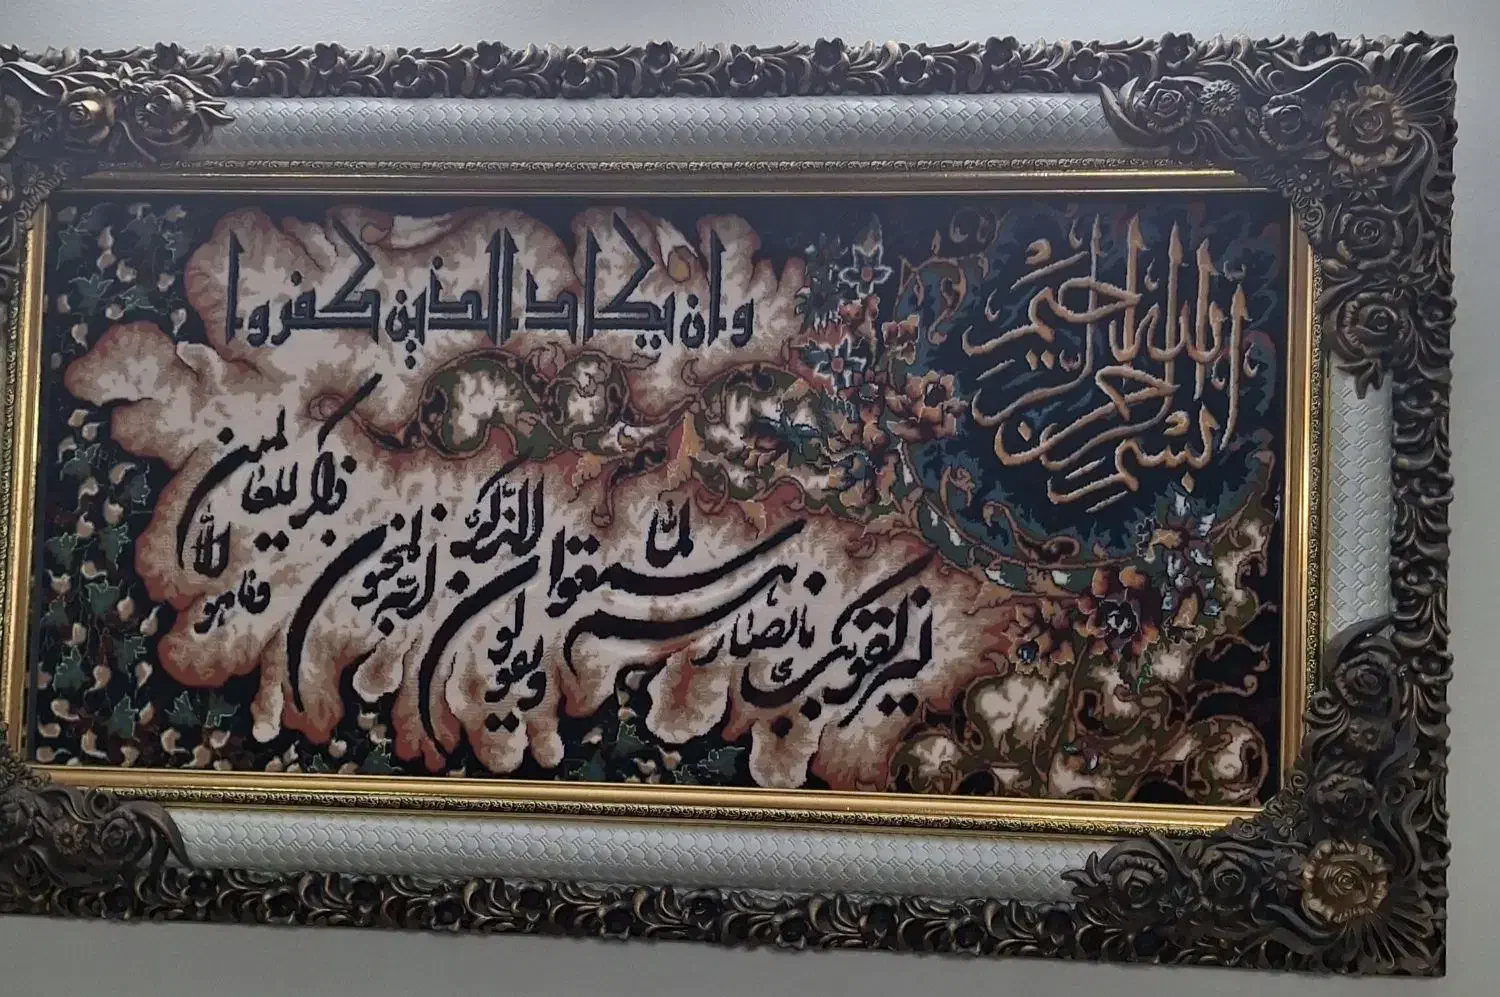 بسم الله الرحمن الرحیم
وان یکاد الذین کفروا
لیزلقونک بابصارهم لما سمعوا الذکر
ویقولون انه لمجنون
وما هو الا ذکر للعالمین